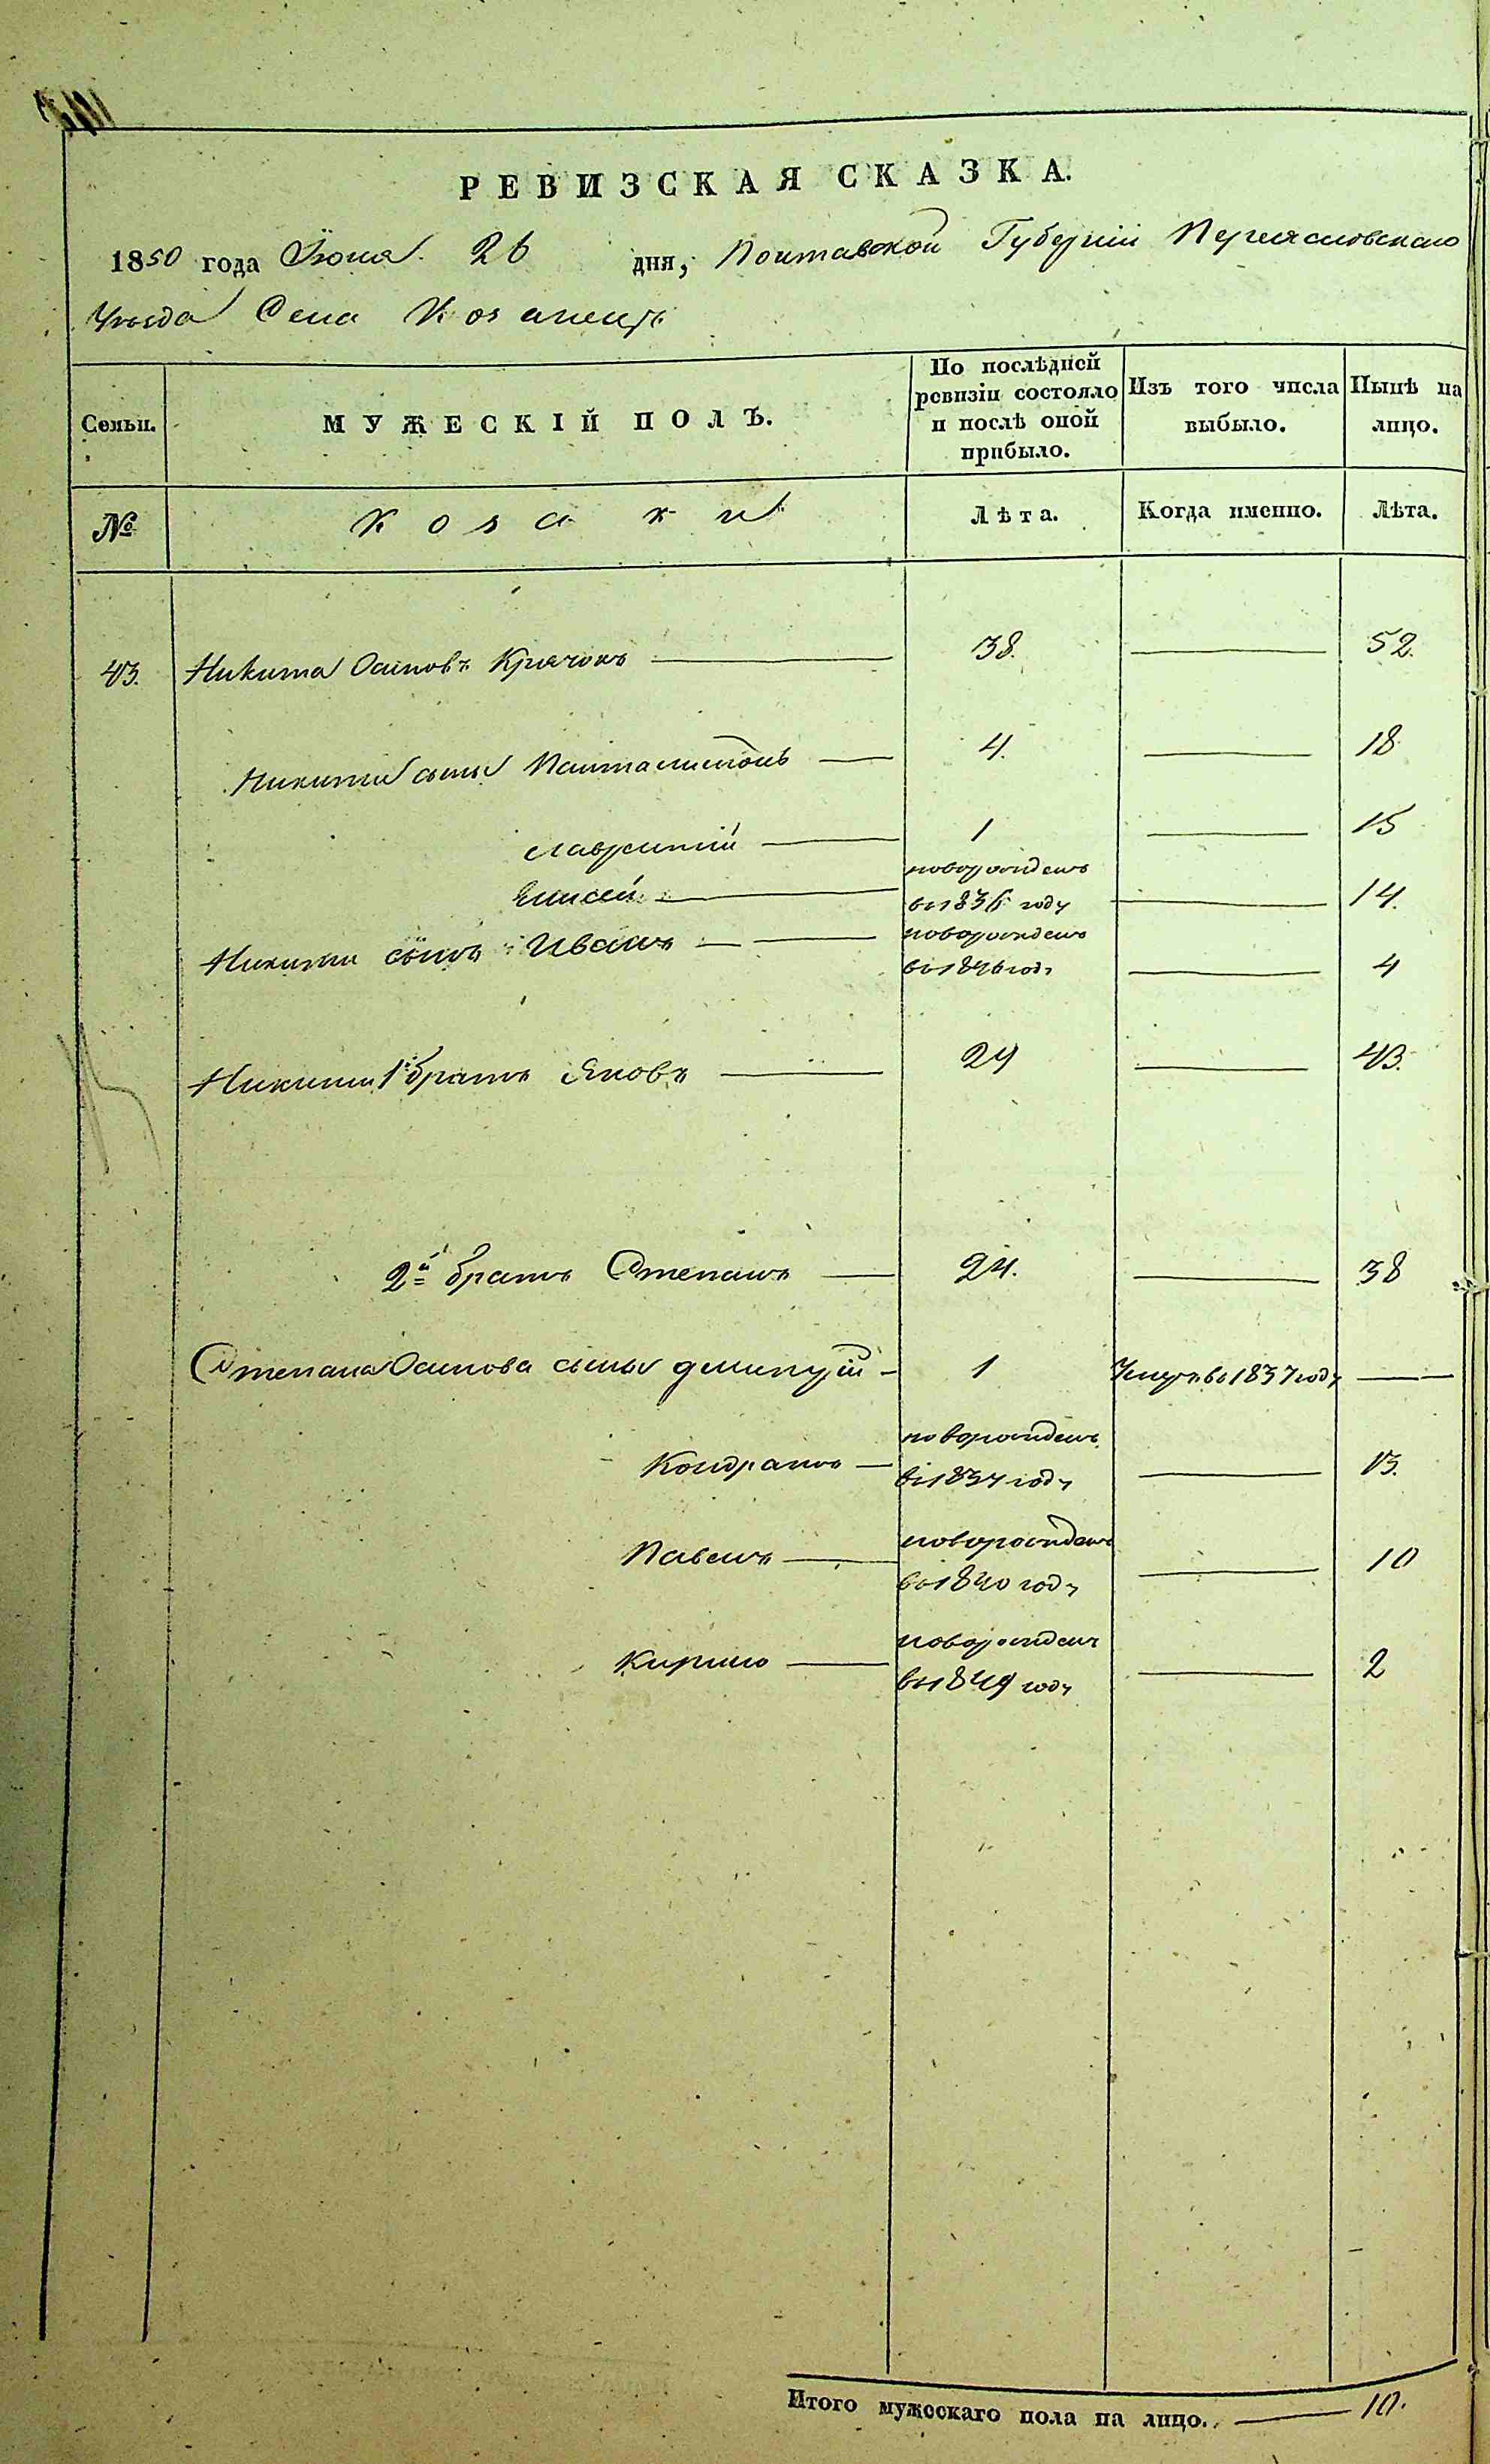 РЕВИЗСКАЯ СКАЗКА.
1850 года Іюня 26 дня, Полтавской Губерніи Переясловскаго
Уѣзда Села Козлепъ
Семьи. МУЖЕСКІЙ ПОЛЪ. По послѣдней ревизіи состояло и послѣ оной прибыло. Изъ того числа выбыло. Нынѣ на лицо.
№ Козаки Лѣта. Когда именно. Лѣта.
43. Никита Осиповъ Крячокъ 38. 52.
Никиты сыны Панталимонъ 4. 18
Лаврентій 1 15
Елисей новорожденъ во 1836 году 14.
Никиты сынъ Иванъ новорожденъ во 1846 году 4
Никиты 1й братъ Яковъ 29 43.
2й братъ Степанъ 24. 38
Степана Осипова сыны Дмитрій 1 Умеръ во 1837 году
Кондратъ новорожденъ во 1837 году 13.
Павелъ новорожденъ во 1840 году 10
Кирило новорожденъ во 1849 году 2
Итого мужескаго пола на лицо. 10.